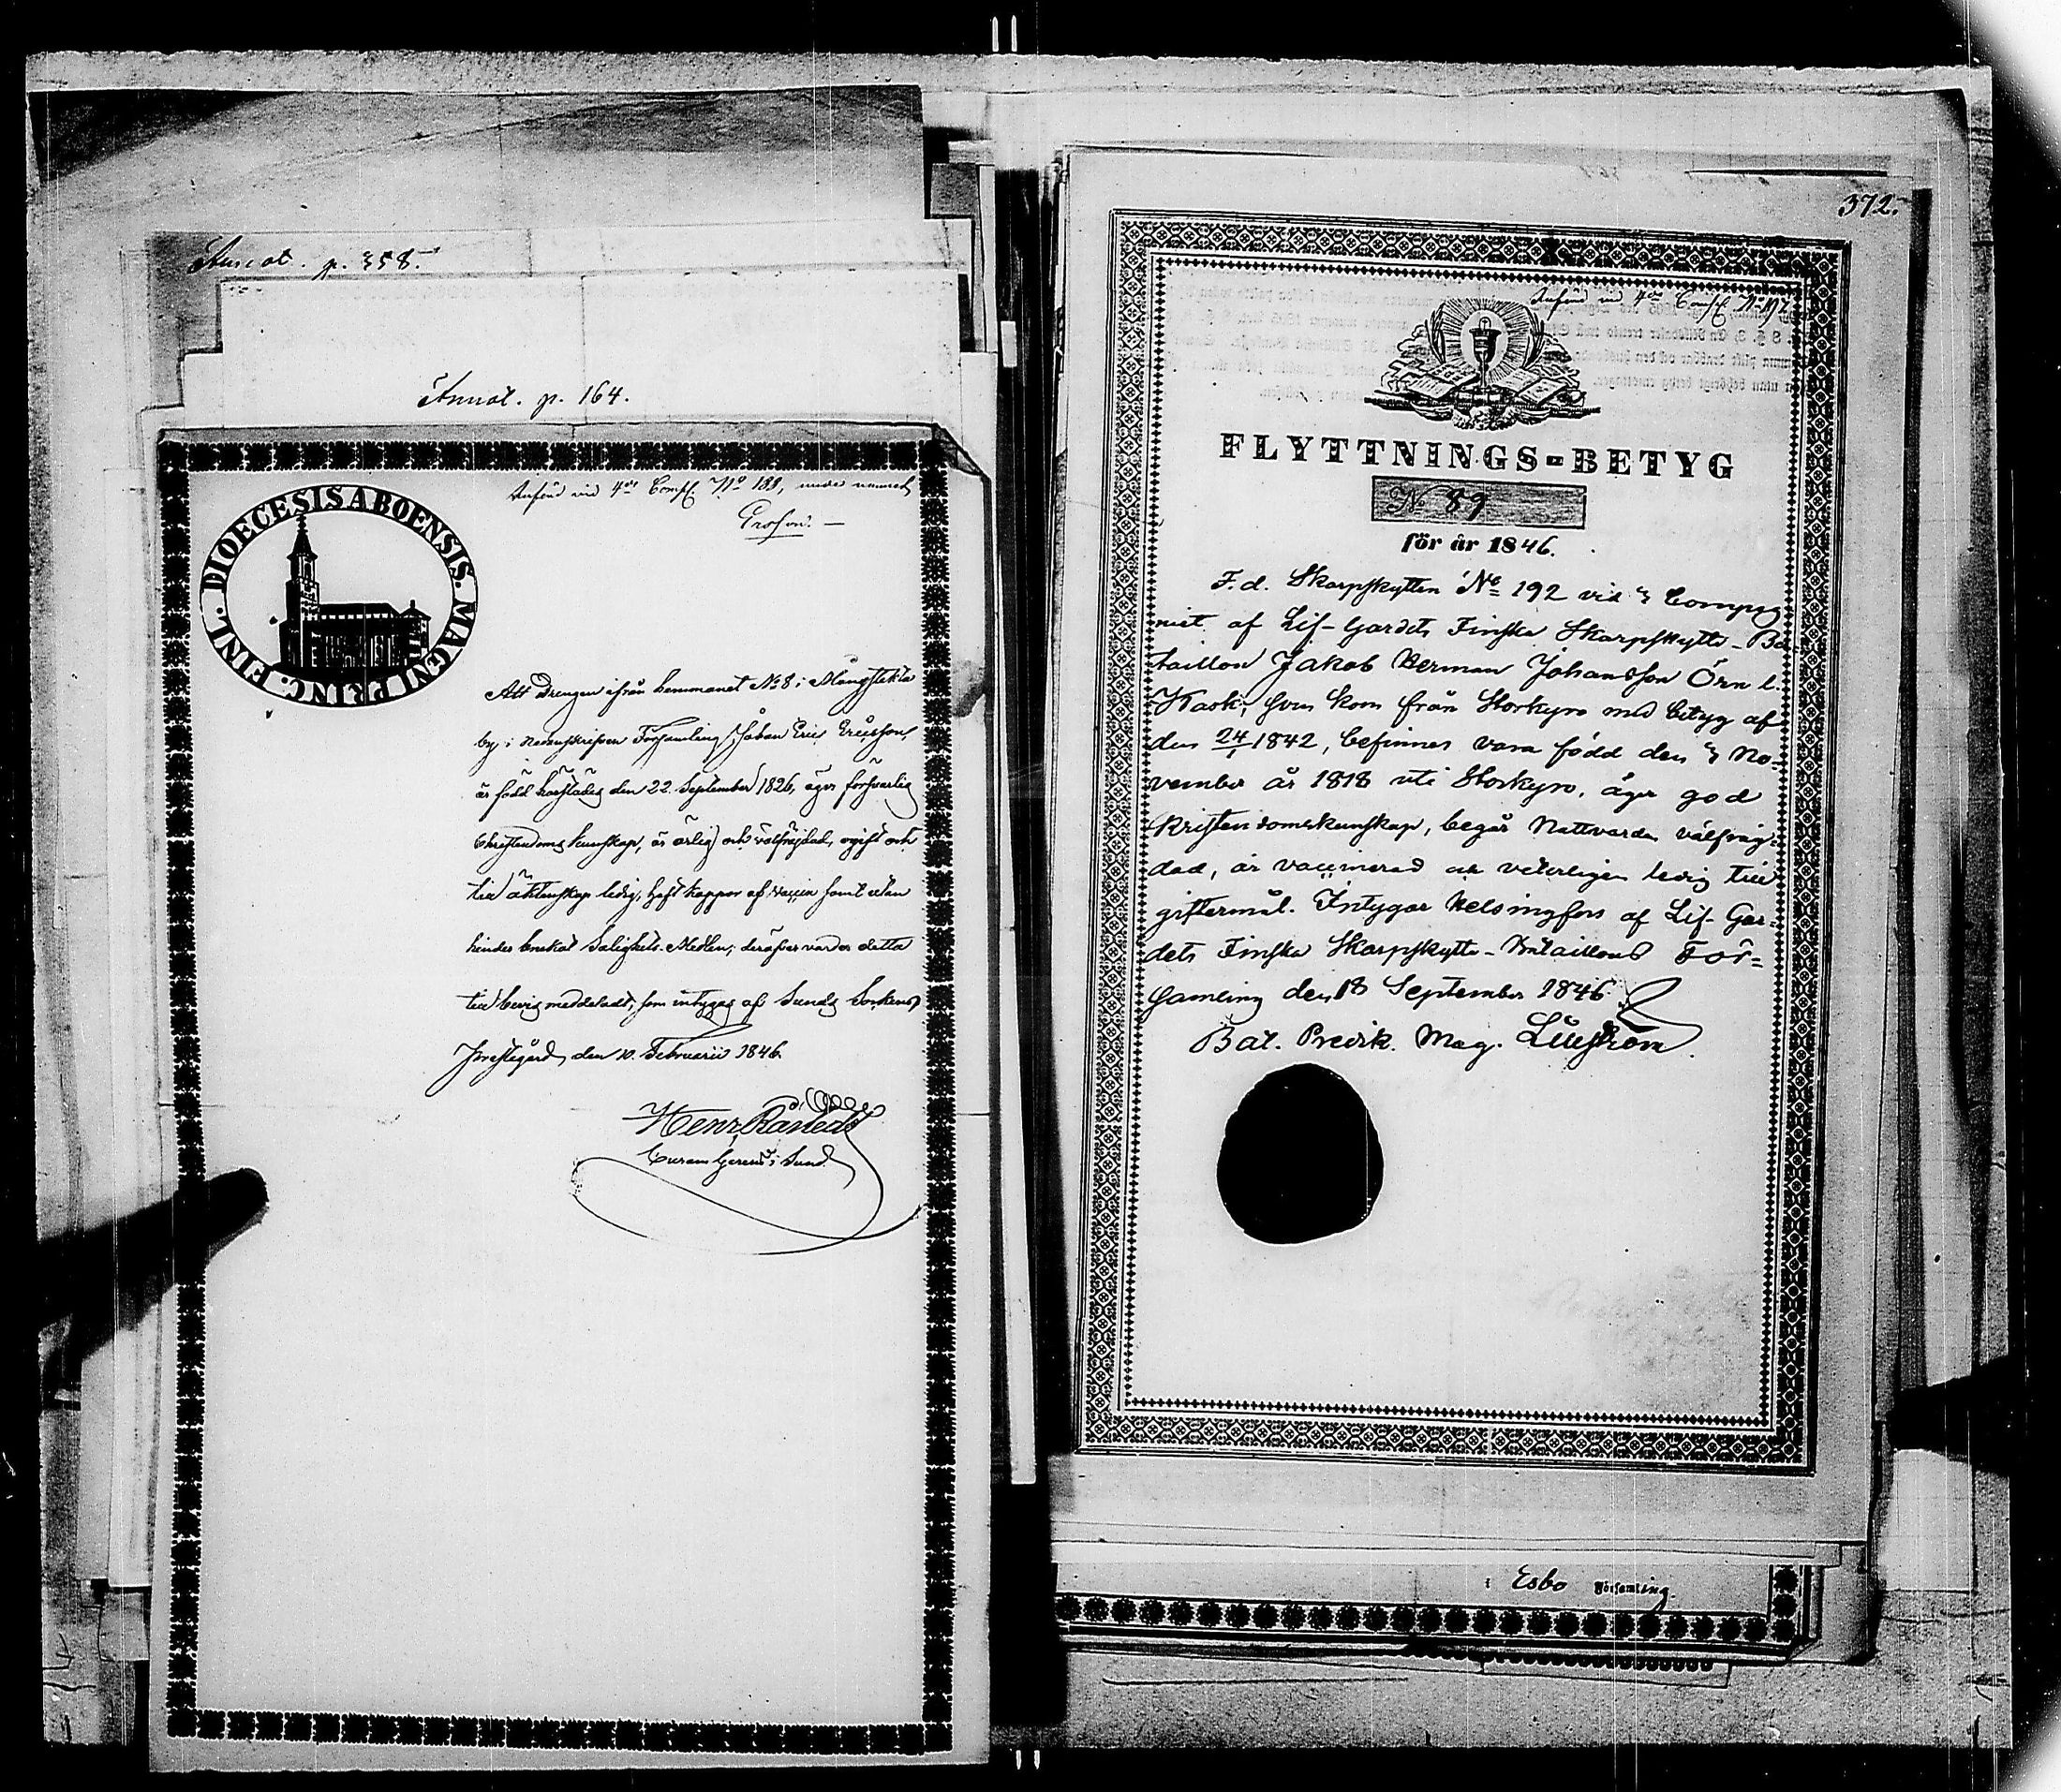 Annot. p. 358.
Annot. p. 164.
DIOECESIS ABOENSIS. MAGNI PRINC. FINL.
Införd vid 4de Comp. No 189, under namnet
Att Drengen ifrån hemmanet No 8 i Mångstekta
by i Nedanskrifven Församling, Johan Eric Ericsson,
är född härstädes den 22 September 1826, äger försvarlig
Christendoms kunskap, är ärlig och välfrejdad, ogift och
till äktenskap ledig, haft koppor af vaccin samt utan
hinder brukat Salighets-Medlen; deröfver varder detta
till bevis meddeladt, som intygas af Sunds Sockens
Prestgård, den 10 Februarii 1846.
Henr.
Curam Gerens i Sund.
372.
Införd vid 4de Comp. No 192
FLYTTNINGS-BETYG
No 89
för år 1846.
F.d. Skarpskytten No 192 vid 3 Compag
niet af Lif-Gardets Finska Skarpskytte-Ba-
taillon Jakob Herman Johansson Örn l.
Kaski, som kom från Storkyro med betyg af
den 24/ 1842, befinnes vara född den 3 No-
vember år 1818 uti Storkyro, äger god
Kristendomskunskap, begår Nattvarden välfräg-
dad, är vaccinerad och veterligen ledig till
giftermål. Intygar Helsingfors af Lif-Gar-
dets Finska Skarpskytte-Bataillons För-
samling den 18 September 1846.
Bat. Predik. Mag. Liljeström.
i Esbo Församling.